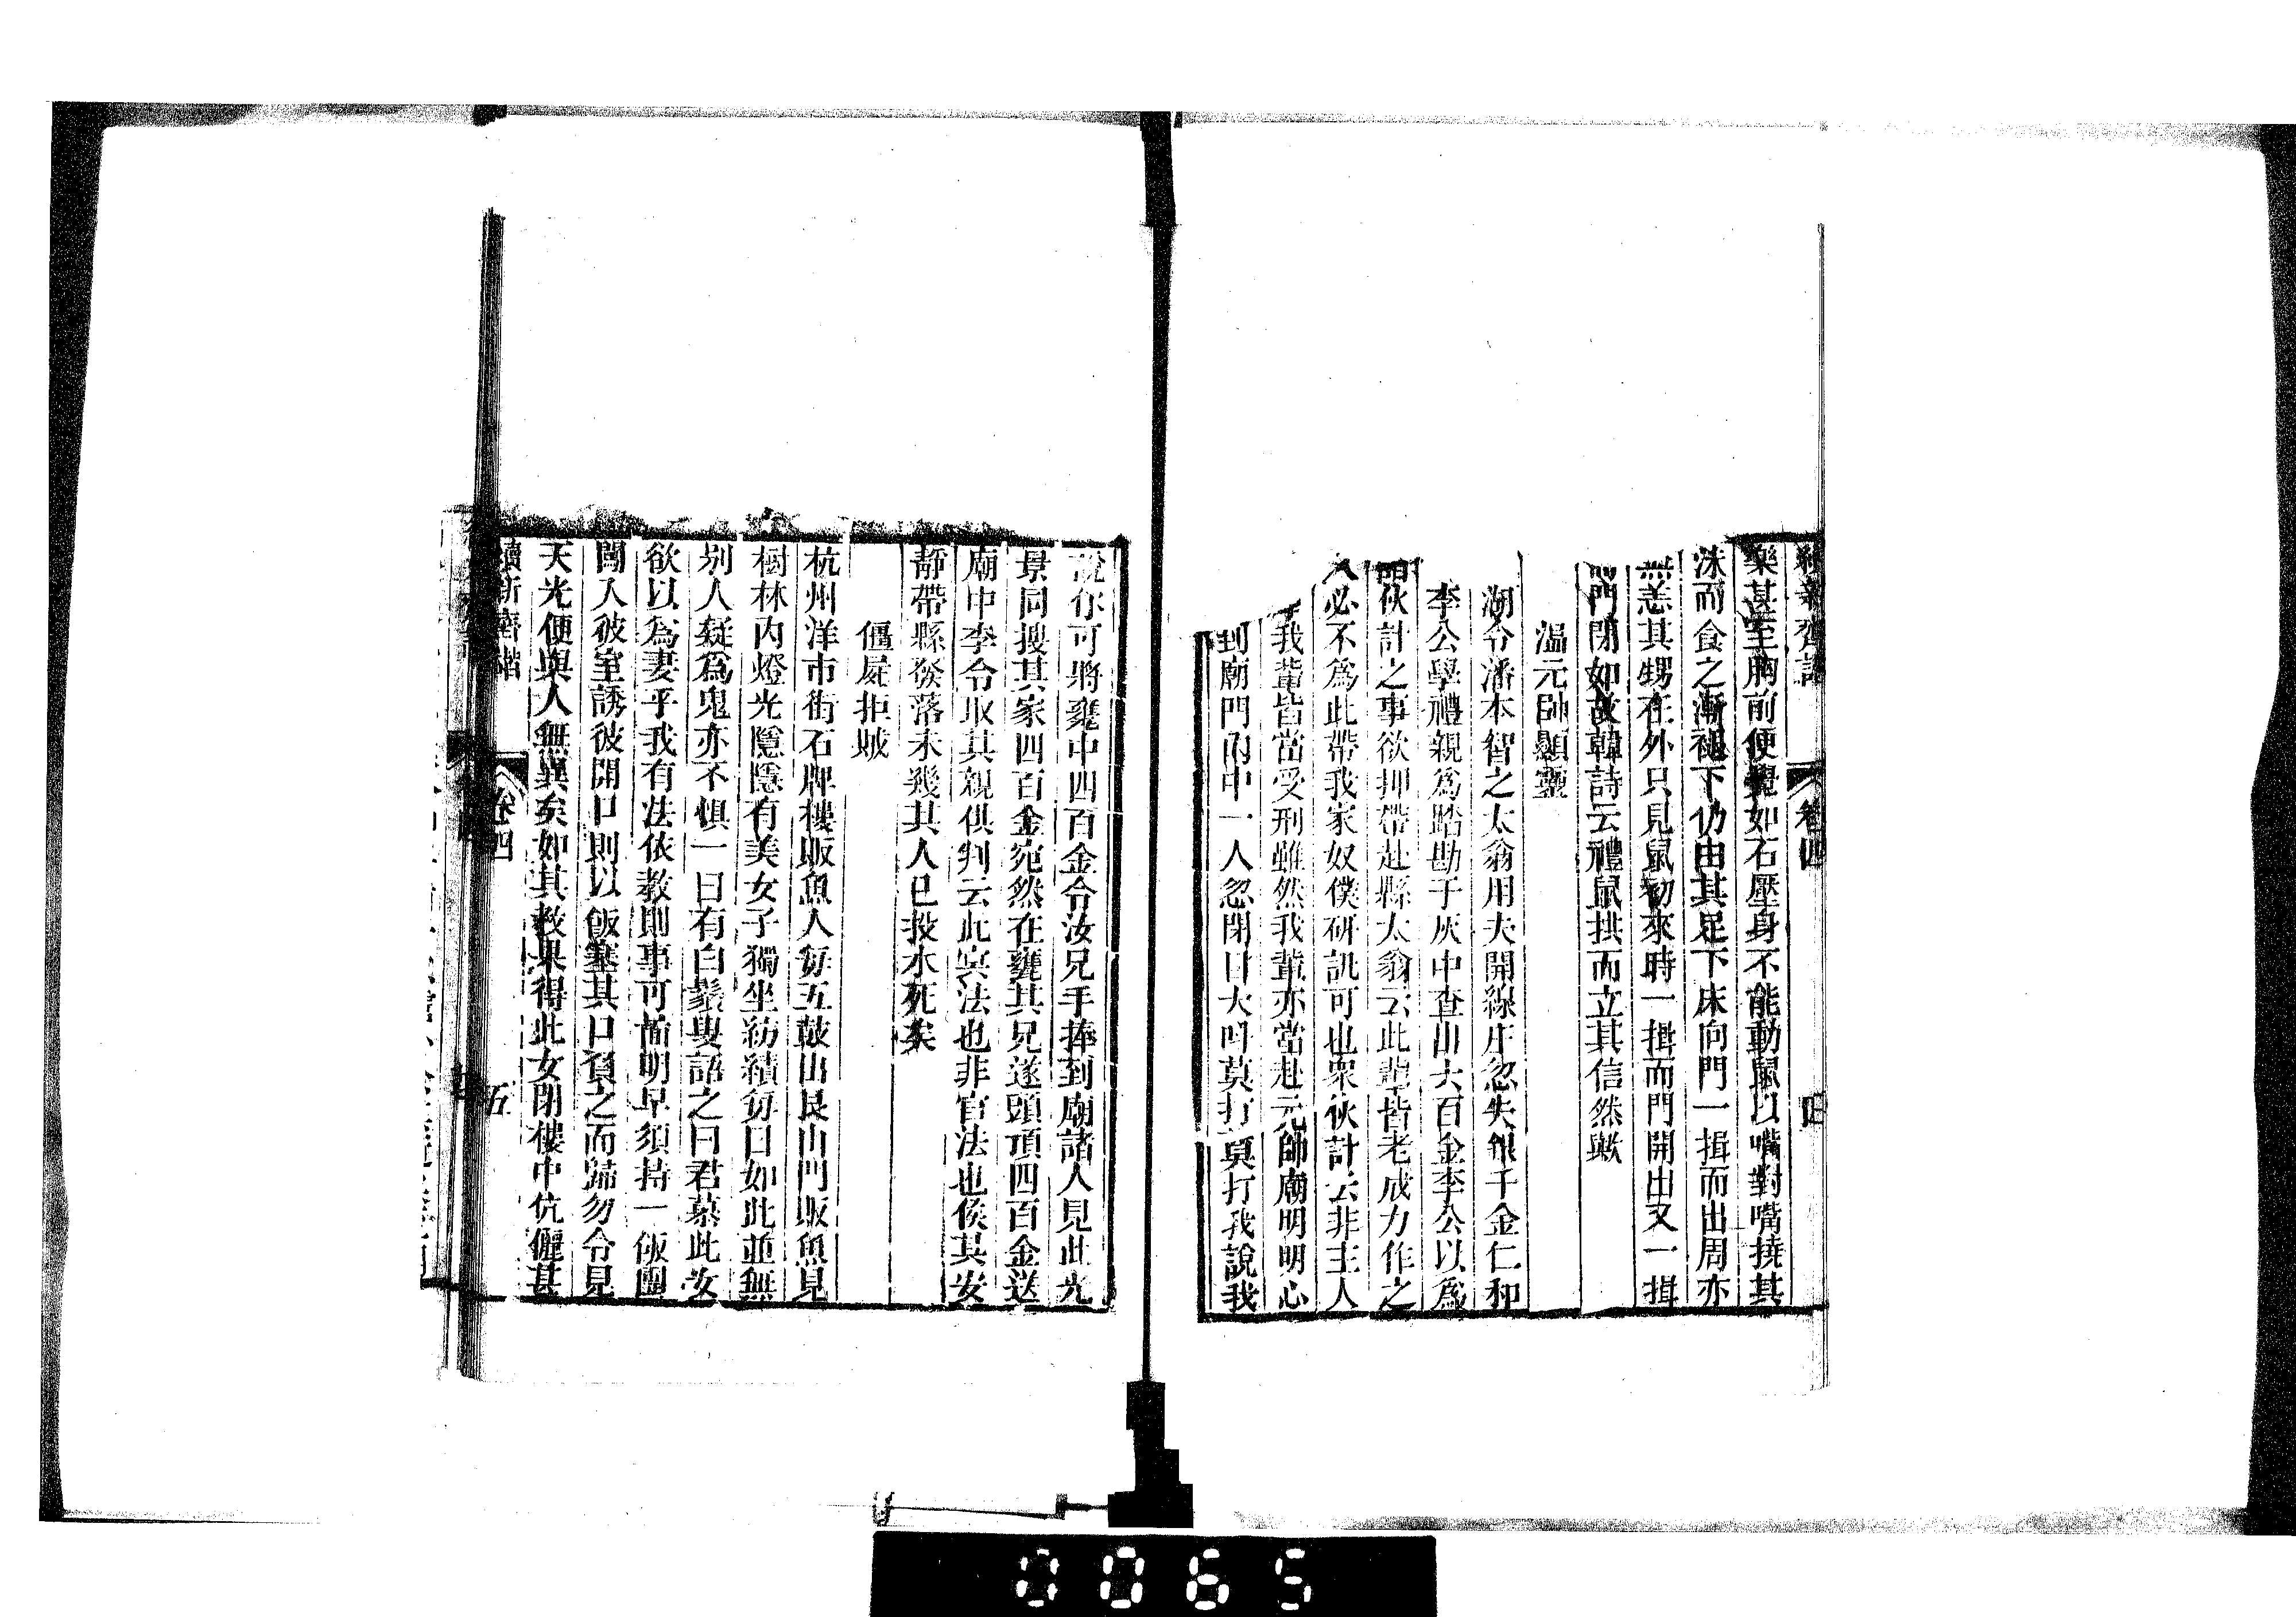 續新齊諧 卷四
樂甚至胸前便覺如石壓身不能動鼠以嘴對嘴撓其
涎而食之漸褪下仍由其足下床向門一揖而出周亦
無恙其甥在外只見鼠初來時一揖而門開出又一揖
門閉如故韓詩云禮鼠拱而立其信然歟
溫元帥顯靈
湖令潘本智之太翁用夫開線庄忽失銀千金仁和
李公學禮親為踏勘于灰中查出六百金李公以為
伙計之事欲押帶赴縣太翁云此輩皆老成力作之
人必不為此帶我家奴僕研訊可也衆伙計云非主人
我輩皆當受刑雖然我輩亦當赴元帥廟明明心
到廟門內中一人忽閉目大叫莫打莫打我說我
說你可將甕中四百金令汝兄手捧到廟諸人見此光
景同搜其家四百金宛然在甕其兄遂頭頂四百金送
廟中李令取其親供判云此冥法也非官法也俟其安
靜帶縣發落未幾其人已投水死矣
僵屍拒賊
杭州洋市街石牌樓販魚人每五鼓出艮山門販魚見
樹林內燈光隱隱有美女子獨坐紡績每日如此並無
別人疑為鬼亦不懼一日有白鬚叟語之曰君慕此女
欲以為妻乎我有法依教則事可諧明早須持一飯團
闖入彼室誘彼開口則以飯塞其口負之而歸勿令見
天光便與人無異矣如其教果得此女閉樓中伉儷甚
續新齊諧 卷四 五